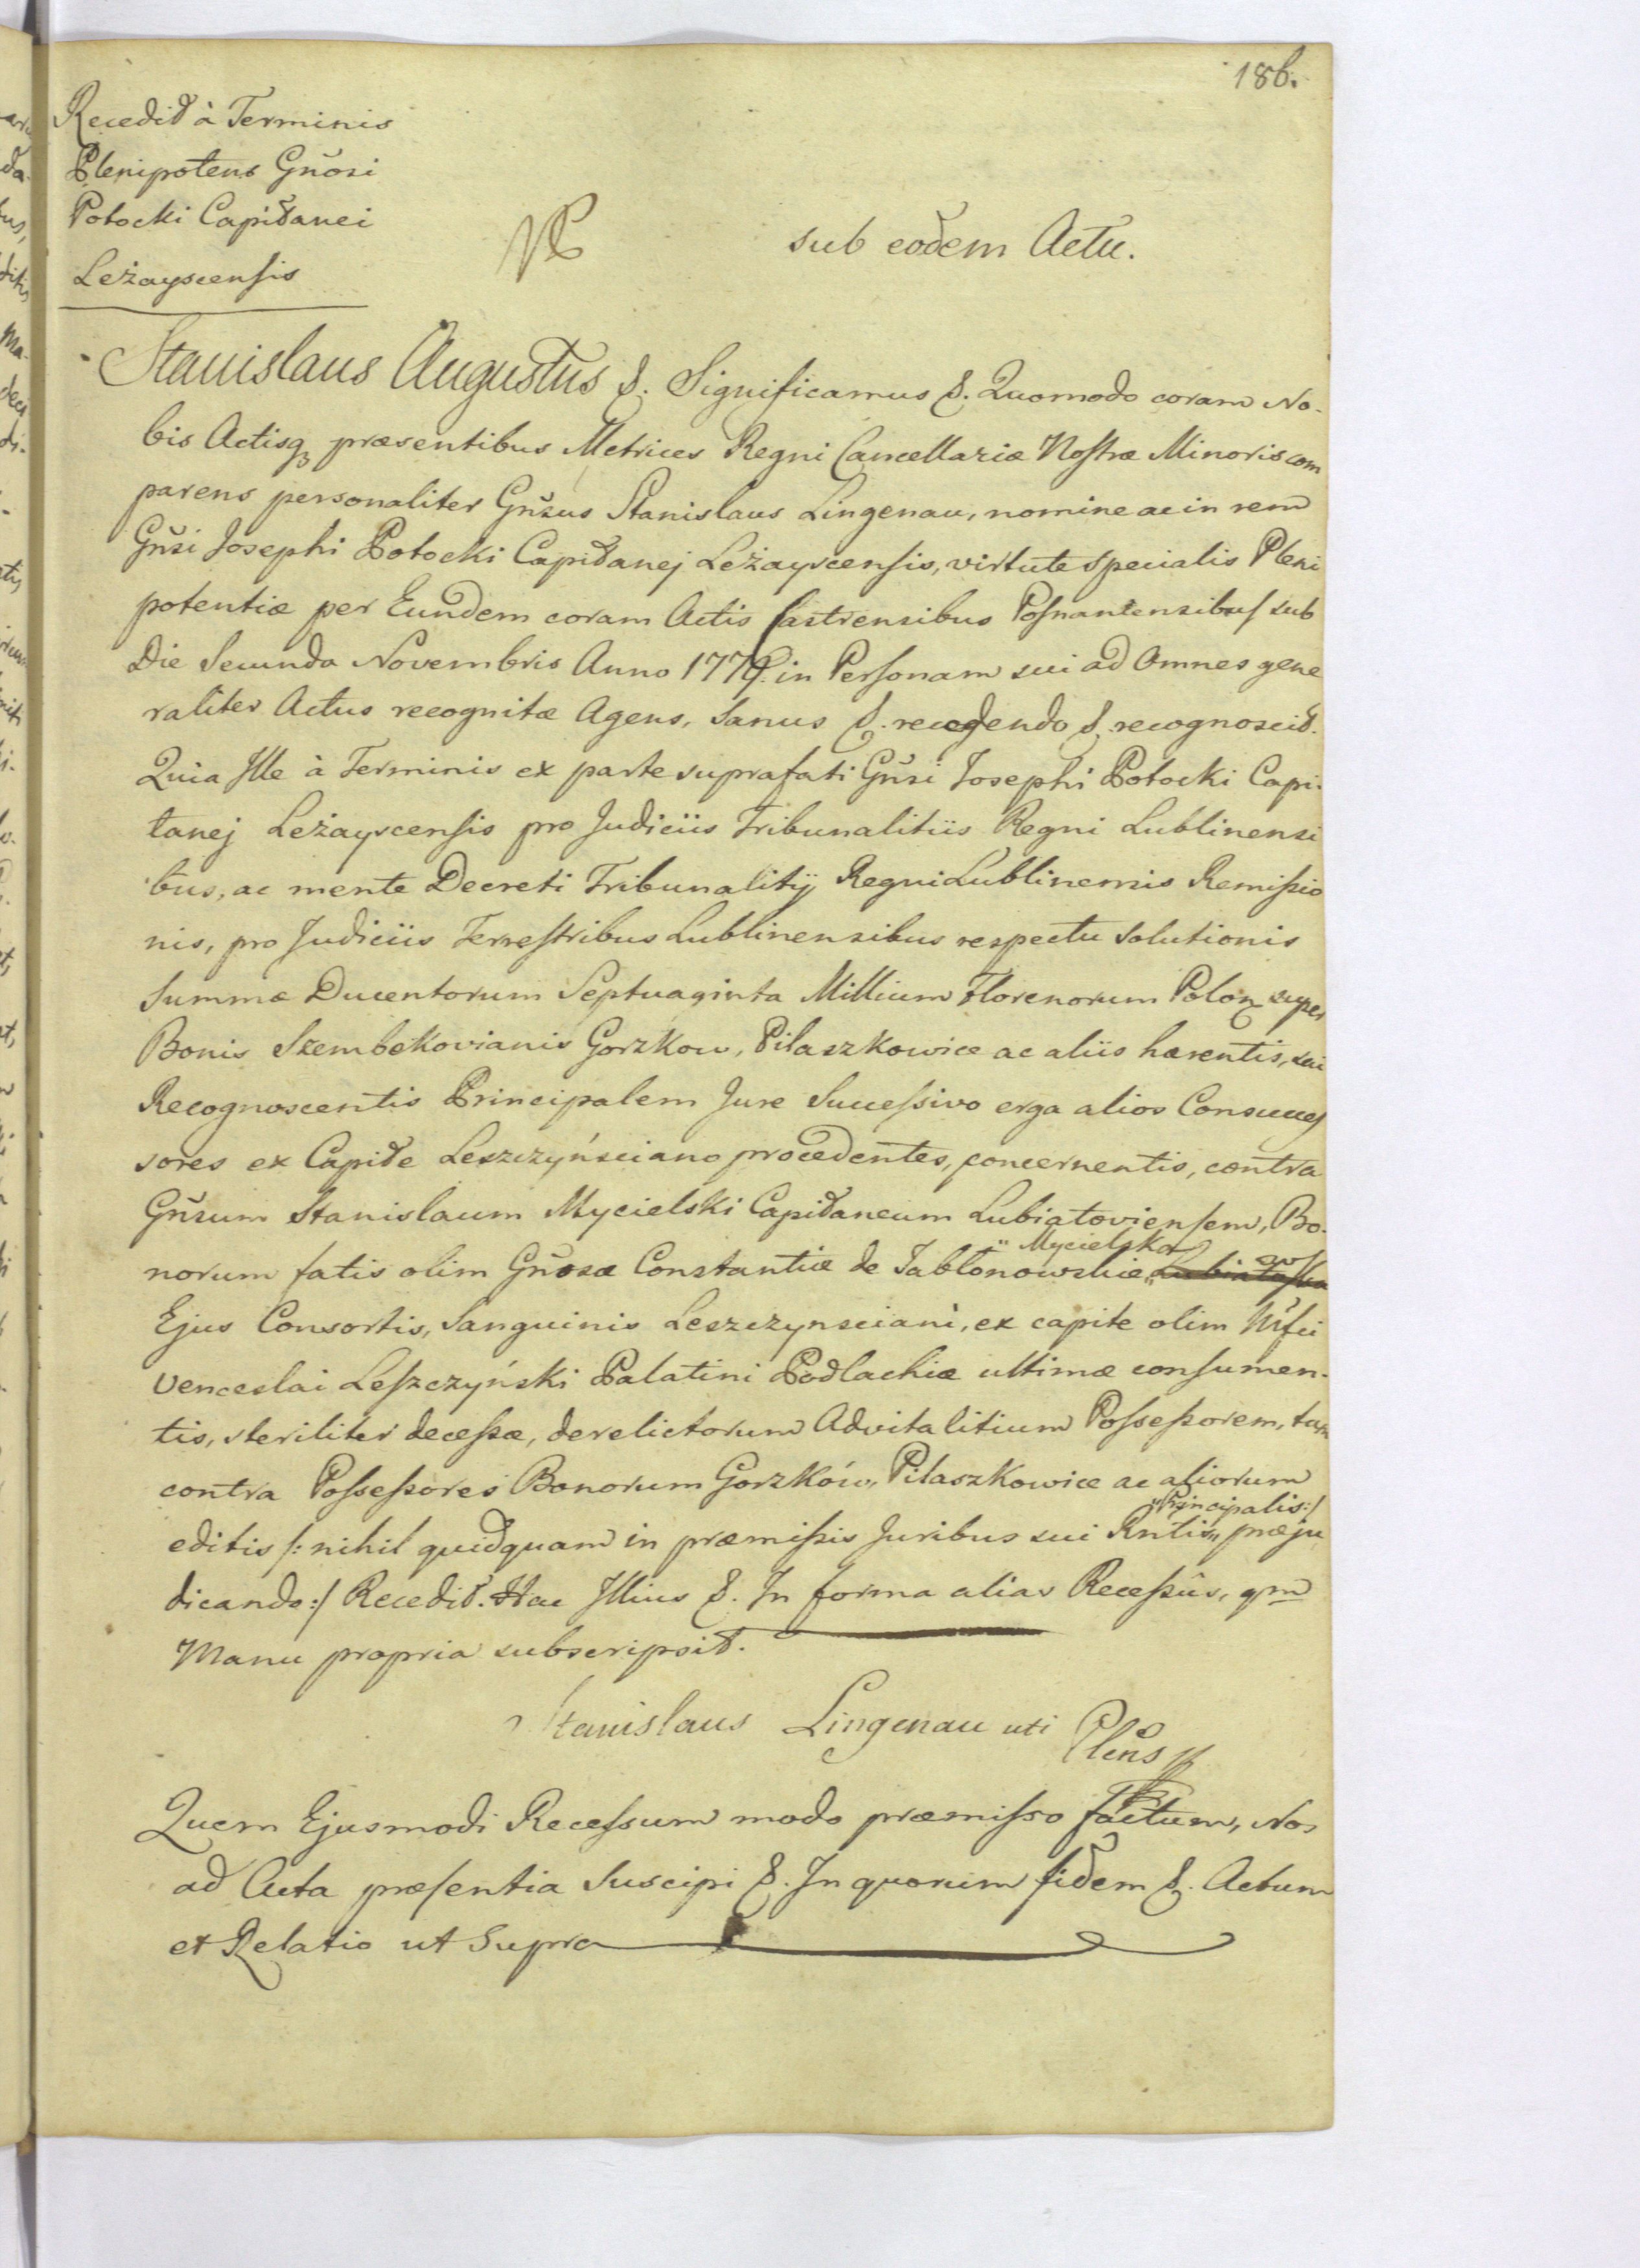 186.
Recedit à Terminis
Plenipotens Gnosi
Potocki Capitanei
Leżayscensis
sub eodem Actu.
Stanislaus Augustus &. Significamus &. Quomodo coram No-
bis Actisq, præsentibus Metrices Regni Cancellariæ Nostræ Minoris com
parens personaliter Gnsus Stanislaus Lingenau, nomine ac in rem
Gnsi Josephi Potocki Capitanej Leżayscensis, virtute specialis Pleni
potentiæ per Eundem coram Actis Castrensibus Posnaniensibus sub
Die Secunda Novembris Anno 1779. in Personam sui ad Omnes gene
raliter Actus recognitæ Agens, Sanus &. recedendo &. recognoscit.
Quia Ille à Terminis ex parte suprafati Gnsi Josephi Potocki Capi-
tanej Leżayscensis pro Judiciis Tribunalitiis Regni Lublinensi
bus, ac mente Decreti Tribunalitij Regni Lublinensis Remissio
nis, pro Judiciis Terrestribus Lublinensibus respectu Solutionis
Summæ Ducentorum Septuaginta Millium Florenorum Polon super
Bonis Szembekovianis Gorzkow, Pilaszkowice ac aliis hærentis, sui
Recognoscentis Principalem Jure Successivo erga alios Consucces
sores ex Capite Leszczyńsciano procedentes, concernentis, contra
Gnsum Stanislaum Mycielski Capitaneum Lubiatoviensem, Bo-
norum fatis olim Gnosæ Constantiæ de Jabłonowskie „Mycielska
Ejus Consortis, Sanguinis Leszczynsciani, ex capite olim Mfci
Venceslai Leszczyński Palatini Podlachiæ ultimæ consumen-
tis, steriliter decessæ, derelictorum Advitalitium Possessorem, tum
contra Possessores Bonorum Gorzków, Pilaszkowice ac aliorum
editis /: nihil quidquam in præmissis Juribus sui Rntis „Principalis:/ præju
dicando :/ Recedit. Hac Illius &. In forma alias Recessûs, qm
Manu propria subscripsit.
Stanislaus Lingenau uti Plens
Quem Ejusmodi Recessum modo præmisso factum, Nos
ad Acta præsentia Suscipi &. In quorum fidem &. Actum
et Relatio ut Supra